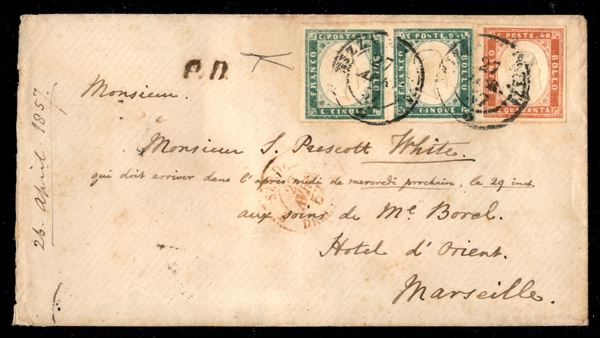 P.D.
FRANCO C. POSTE. 05 BOLLO C. CINQUE
FRANCO C. POSTE. 05 BOLLO C. CINQUE
C. POSTE. 40 BOLLO QUARANTA
Monsieur
Monsieur S. Prescott White.
qui doit arriver dans l'après midi de mercredi prochain, le 29 inst.
aux soins de Mr Borel.
Hotel d'Orient.
Marseille.
26. April 1857